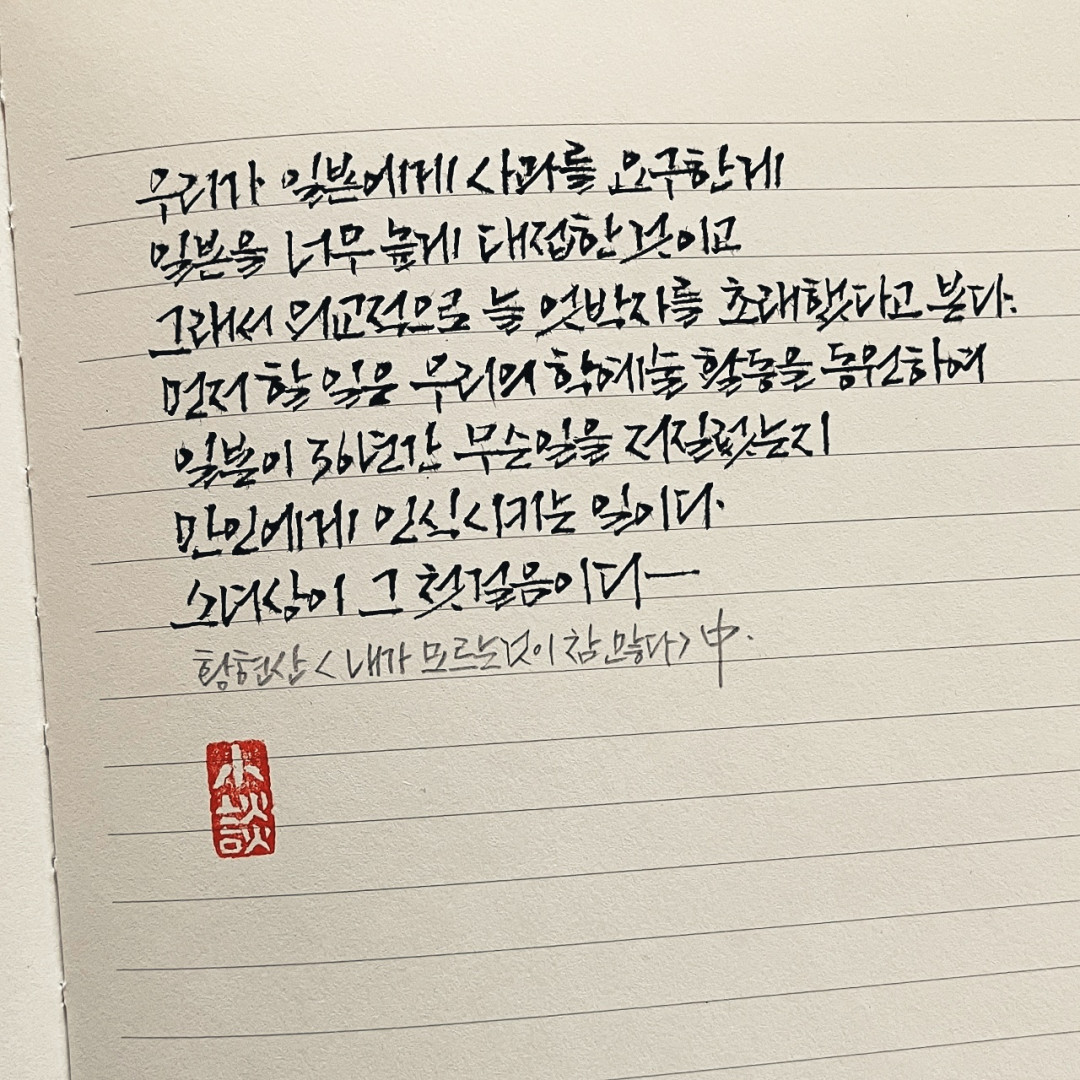 우리가 일본에게 사과를 요구한게
일본을 너무 높게 대접한 것이고
그래서 외교적으로 늘 엇박자를 초래했다고 본다.
먼저 할 일은 우리의 학예술 활동을 동원하여
일본이 36년간 무슨일을 저질렀는지
만인에게 인식시키는 일이다.
소녀상이 그 첫걸음이다—
황현산 < 내가 모르는 것이 참 많다 > 中.
小談